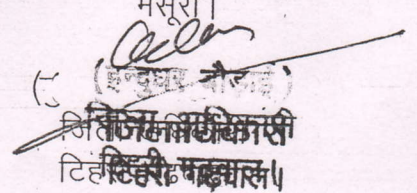 मसूरी।
(इन्दुधर बौड़ाई)
जिलाधिकारी
टिहरी गढ़वाल।